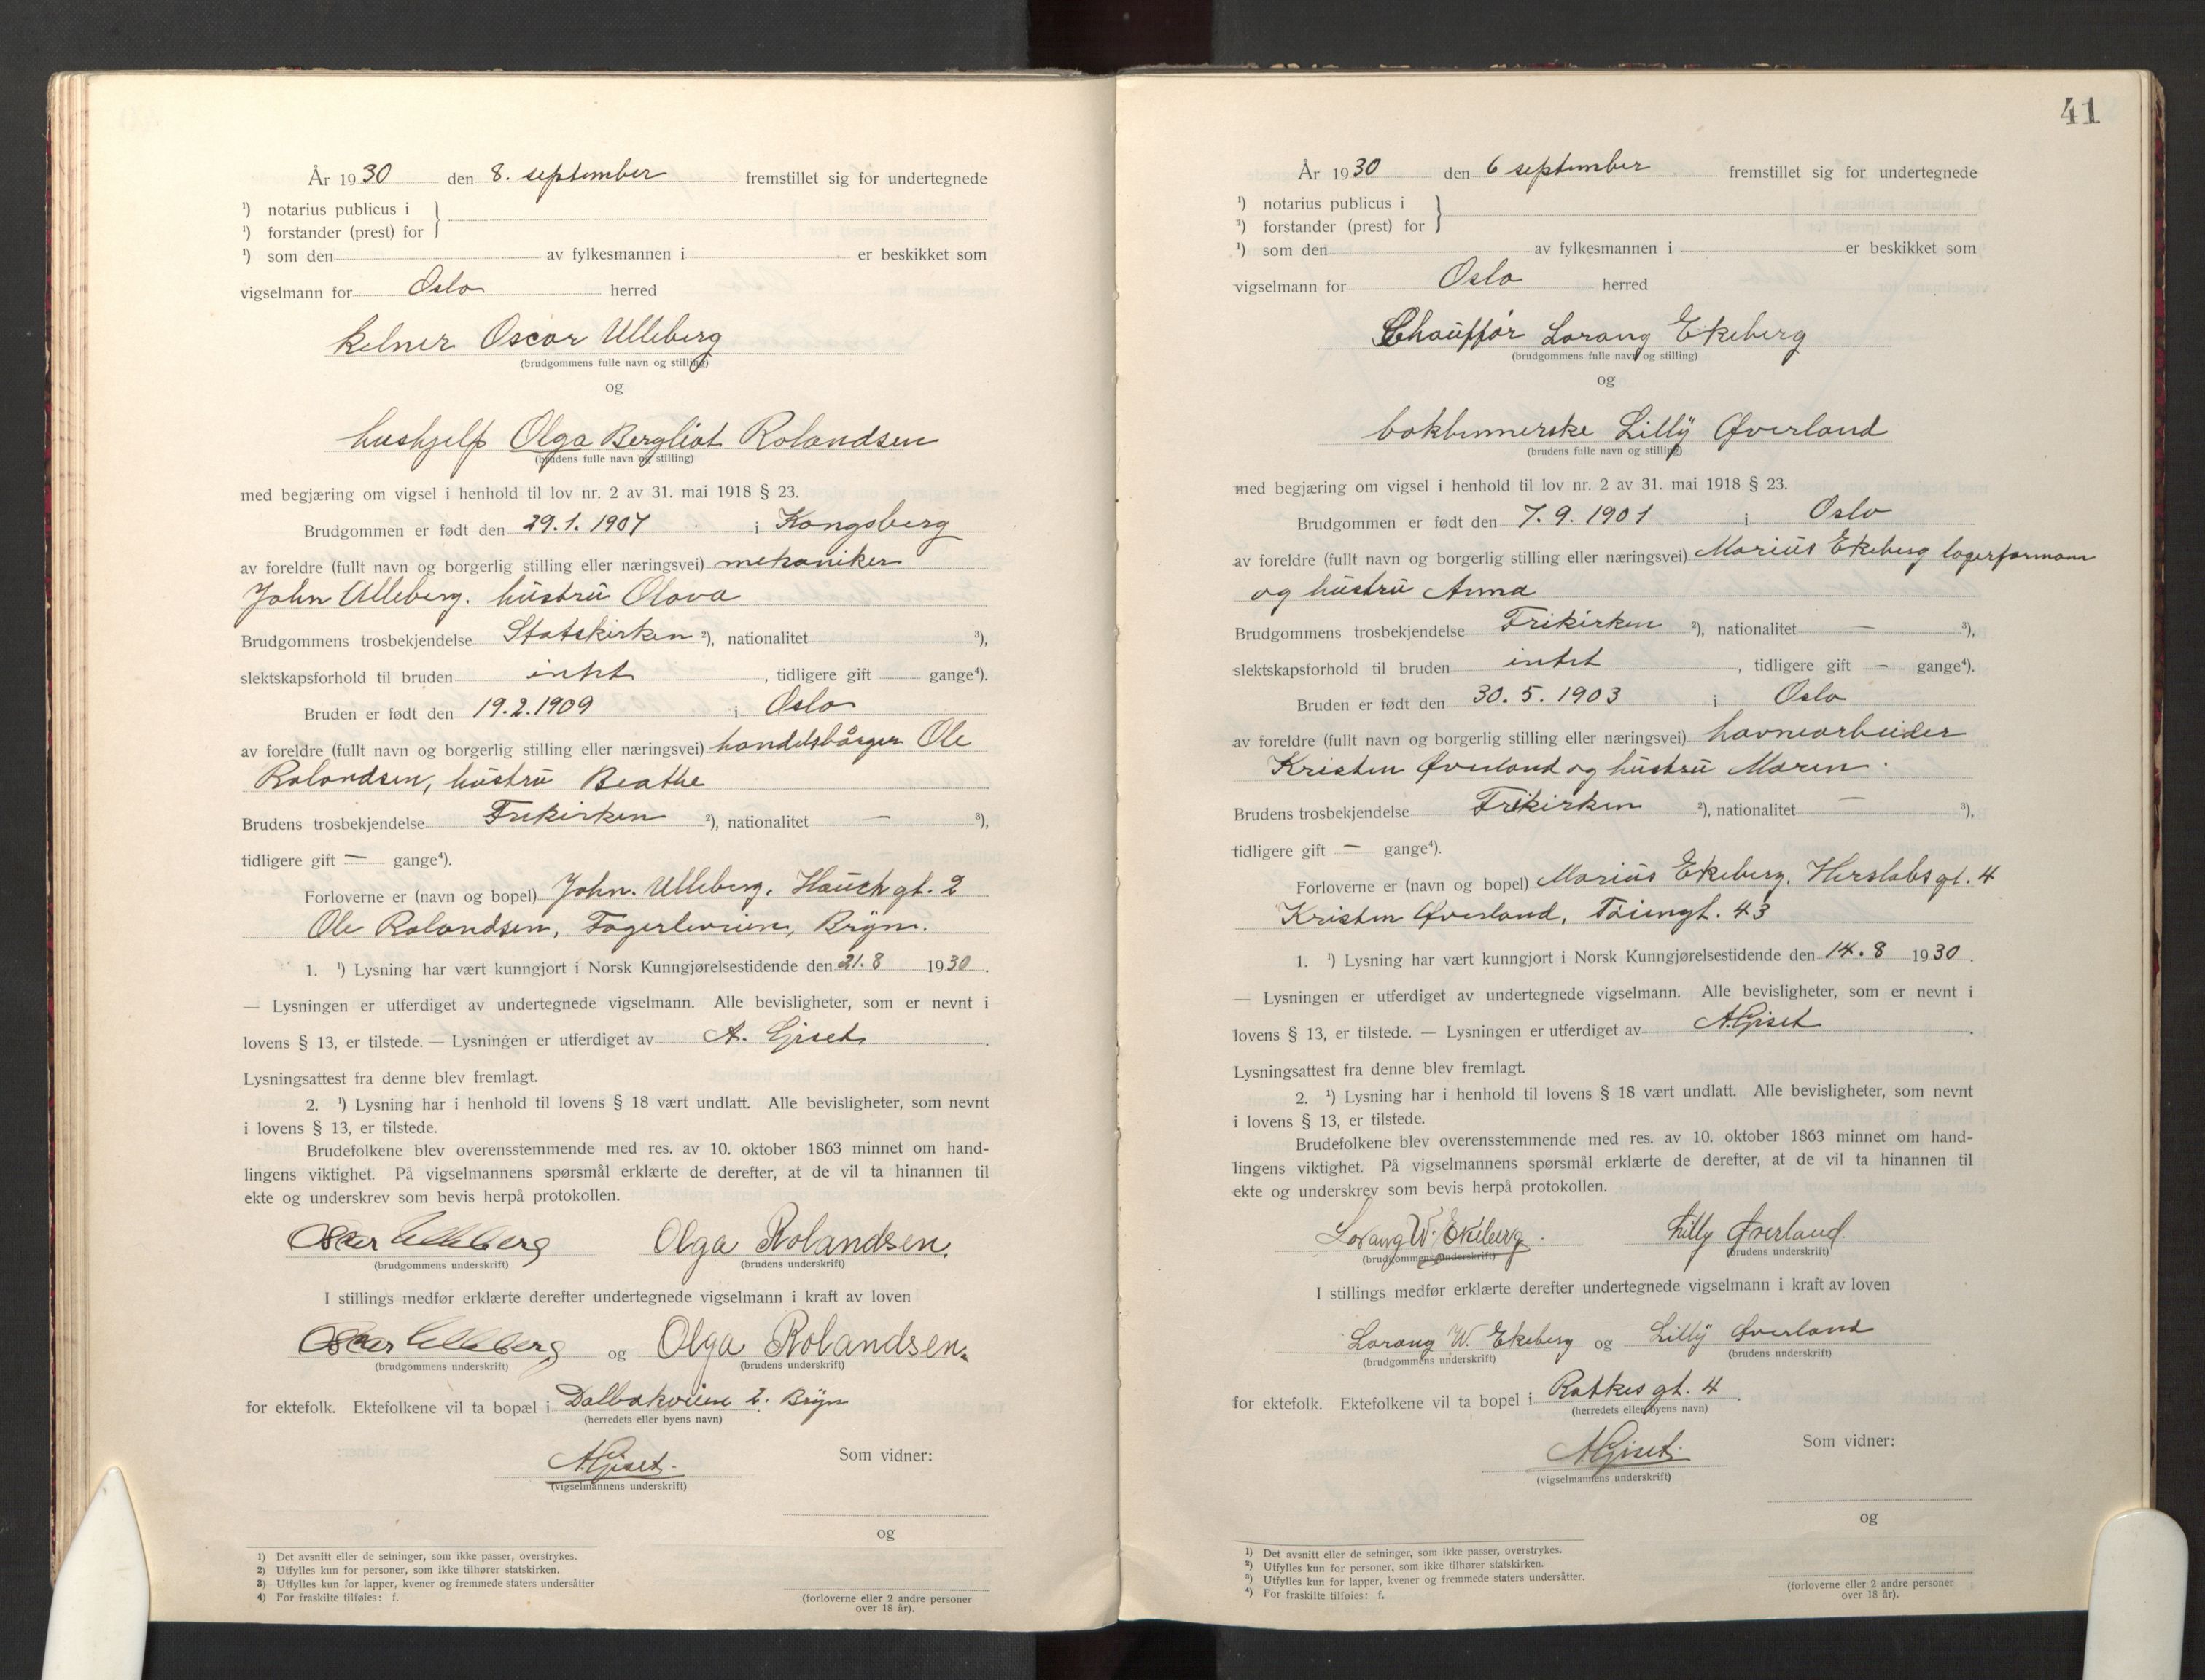 År 1930 den 8. september fremstillet sig for undertegnede
¹) notarius publicus i
¹) forstander (prest) for
¹) som den av fylkesmannen i er beskikket som
vigselmann for Oslo herred
Kelner Oscar Ulleberg
(brudgommens fulle navn og stilling)
og
hushjelp Olga Bergliot Rolandsen
(brudens fulle navn og stilling)
med begjæring om vigsel i henhold til lov nr. 2 av 31. mai 1918 § 23.
Brudgommen er født den 29.1.1907 i Kongsberg
av foreldre (fullt navn og borgerlig stilling eller næringsvei) mekaniker
John Ulleberg. hustru Olava
Brudgommens trosbekjendelse Statskirken ²), nationalitet ³),
slektskapsforhold til bruden intet, tidligere gift gange⁴).
Bruden er født den 19.2.1909 i Oslo
av foreldre (fullt navn og borgerlig stilling eller næringsvei) handelsbårger Ole
Rolandsen, hustru Beathe
Brudens trosbekjendelse Frikirken ²), nationalitet — ³),
tidligere gift — gange⁴).
Forloverne er (navn og bopel) John. Ulleberg. Hauch gt. 2
Ole Rolandsen, Fagerliveien, Bryn.
1. ¹) Lysning har vært kunngjort i Norsk Kunngjørelsestidende den 21.8 1930.
— Lysningen er utferdiget av undertegnede vigselmann. Alle bevisligheter, som er nevnt i
lovens § 13, er tilstede. — Lysningen er utferdiget av A. Gjset.
Lysningsattest fra denne blev fremlagt.
2. ¹) Lysning har i henhold til lovens § 18 vært undlatt. Alle bevisligheter, som nevnt
i lovens § 13, er tilstede.
Brudefolkene blev overensstemmende med res. av 10. oktober 1863 minnet om hand-
lingens viktighet. På vigselmannens spørsmål erklærte de derefter, at de vil ta hinannen til
ekte og underskrev som bevis herpå protokollen.
Oscar Ulleberg Olga Rolandsen.
(brudgommens underskrift) (brudens underskrift)
I stillings medfør erklærte derefter undertegnede vigselmann i kraft av loven
Oscar Ulleberg og Olga Rolandsen.
(brudgommens underskrift) (brudens underskrift)
for ektefolk. Ektefolkene vil ta bopæl i Dalbakveien 2. Bryn
(herredets eller byens navn)
A Giset.
(vigselmannens underskrift)
Som vidner:
og
(forloverne eller 2 andre personer
over 18 år).
1) Det avsnitt eller de setninger, som ikke passer, overstrykes.
2) Utfylles kun for personer, som ikke tilhører statskirken.
3) Utfylles kun for lapper, kvener og fremmede staters undersåtter
4) For fraskilte tilføies: f.
41
År 1930 den 6 september fremstillet sig for undertegnede
¹) notarius publicus i
¹) forstander (prest) for
¹) som den av fylkesmannen i er beskikket som
vigselmann for Oslo herred
Chauffør Lorang Ekeberg
(brudgommens fulle navn og stilling)
og
bokbinnerske Lilly Øverland
(brudens fulle navn og stilling)
med begjæring om vigsel i henhold til lov nr. 2 av 31. mai 1918 § 23.
Brudgommen er født den 7.9.1901 i Oslo
av foreldre (fullt navn og borgerlig stilling eller næringsvei) Marius Ekeberg lagerformann
og hustru Anna
Brudgommens trosbekjendelse Frikirken ²), nationalitet — ³),
slektskapsforhold til bruden intet, tidligere gift — gange⁴).
Bruden er født den 30.5.1903 i Oslo
av foreldre (fullt navn og borgerlig stilling eller næringsvei) havnearbeider
Kristen Øverland og hustru Maren.
Brudens trosbekjendelse Frikirken ²), nationalitet — ³),
tidligere gift — gange⁴).
Forloverne er (navn og bopel) Marius Ekeberg. Herslebs gt. 4
Kristen Øverland, Tøiengt. 43
1. ¹) Lysning har vært kunngjort i Norsk Kunngjørelsestidende den 14.8 1930.
— Lysningen er utferdiget av undertegnede vigselmann. Alle bevisligheter, som er nevnt i
lovens § 13, er tilstede. — Lysningen er utferdiget av A Giset.
Lysningsattest fra denne blev fremlagt.
2. ¹) Lysning har i henhold til lovens § 18 vært undlatt. Alle bevisligheter, som nevnt
i lovens § 13, er tilstede.
Brudefolkene blev overensstemmende med res. av 10. oktober 1863 minnet om hand-
lingens viktighet. På vigselmannens spørsmål erklærte de derefter, at de vil ta hinannen til
ekte og underskrev som bevis herpå protokollen.
Lorang W. Ekeberg. Lilly Øverland.
(brudgommens underskrift) (brudens underskrift)
I stillings medfør erklærte derefter undertegnede vigselmann i kraft av loven
Lorang W. Ekeberg og Lilly Øverland
(brudgommens underskrift) (brudens underskrift)
for ektefolk. Ektefolkene vil ta bopel i Ratkes gt. 4.
(herredets eller byens navn)
A Giset.
(vigselmannens underskrift)
Som vidner:
og
(forloverne eller 2 andre personer
over 18 år).
¹) Det avsnitt eller de setninger, som ikke passer, overstrykes.
²) Utfylles kun for personer, som ikke tilhører statskirken.
³) Utfylles kun for lapper, kvener og fremmede staters undersåtter.
⁴) For fraskilte tilføies: f.